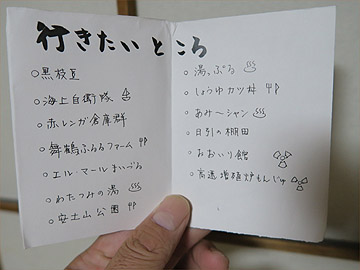 行きたいところ
○黒枝豆
○海上自衛隊
○赤レンガ倉庫群
○舞鶴ふるるファーム
○エル・マールまいづる
○わたつみの湯
○安土山公園
○湯ぷる
○しょうゆカツ丼
○あみ〜シャン
○日引の棚田
○おおい り館
○高速増殖炉もんじゅ